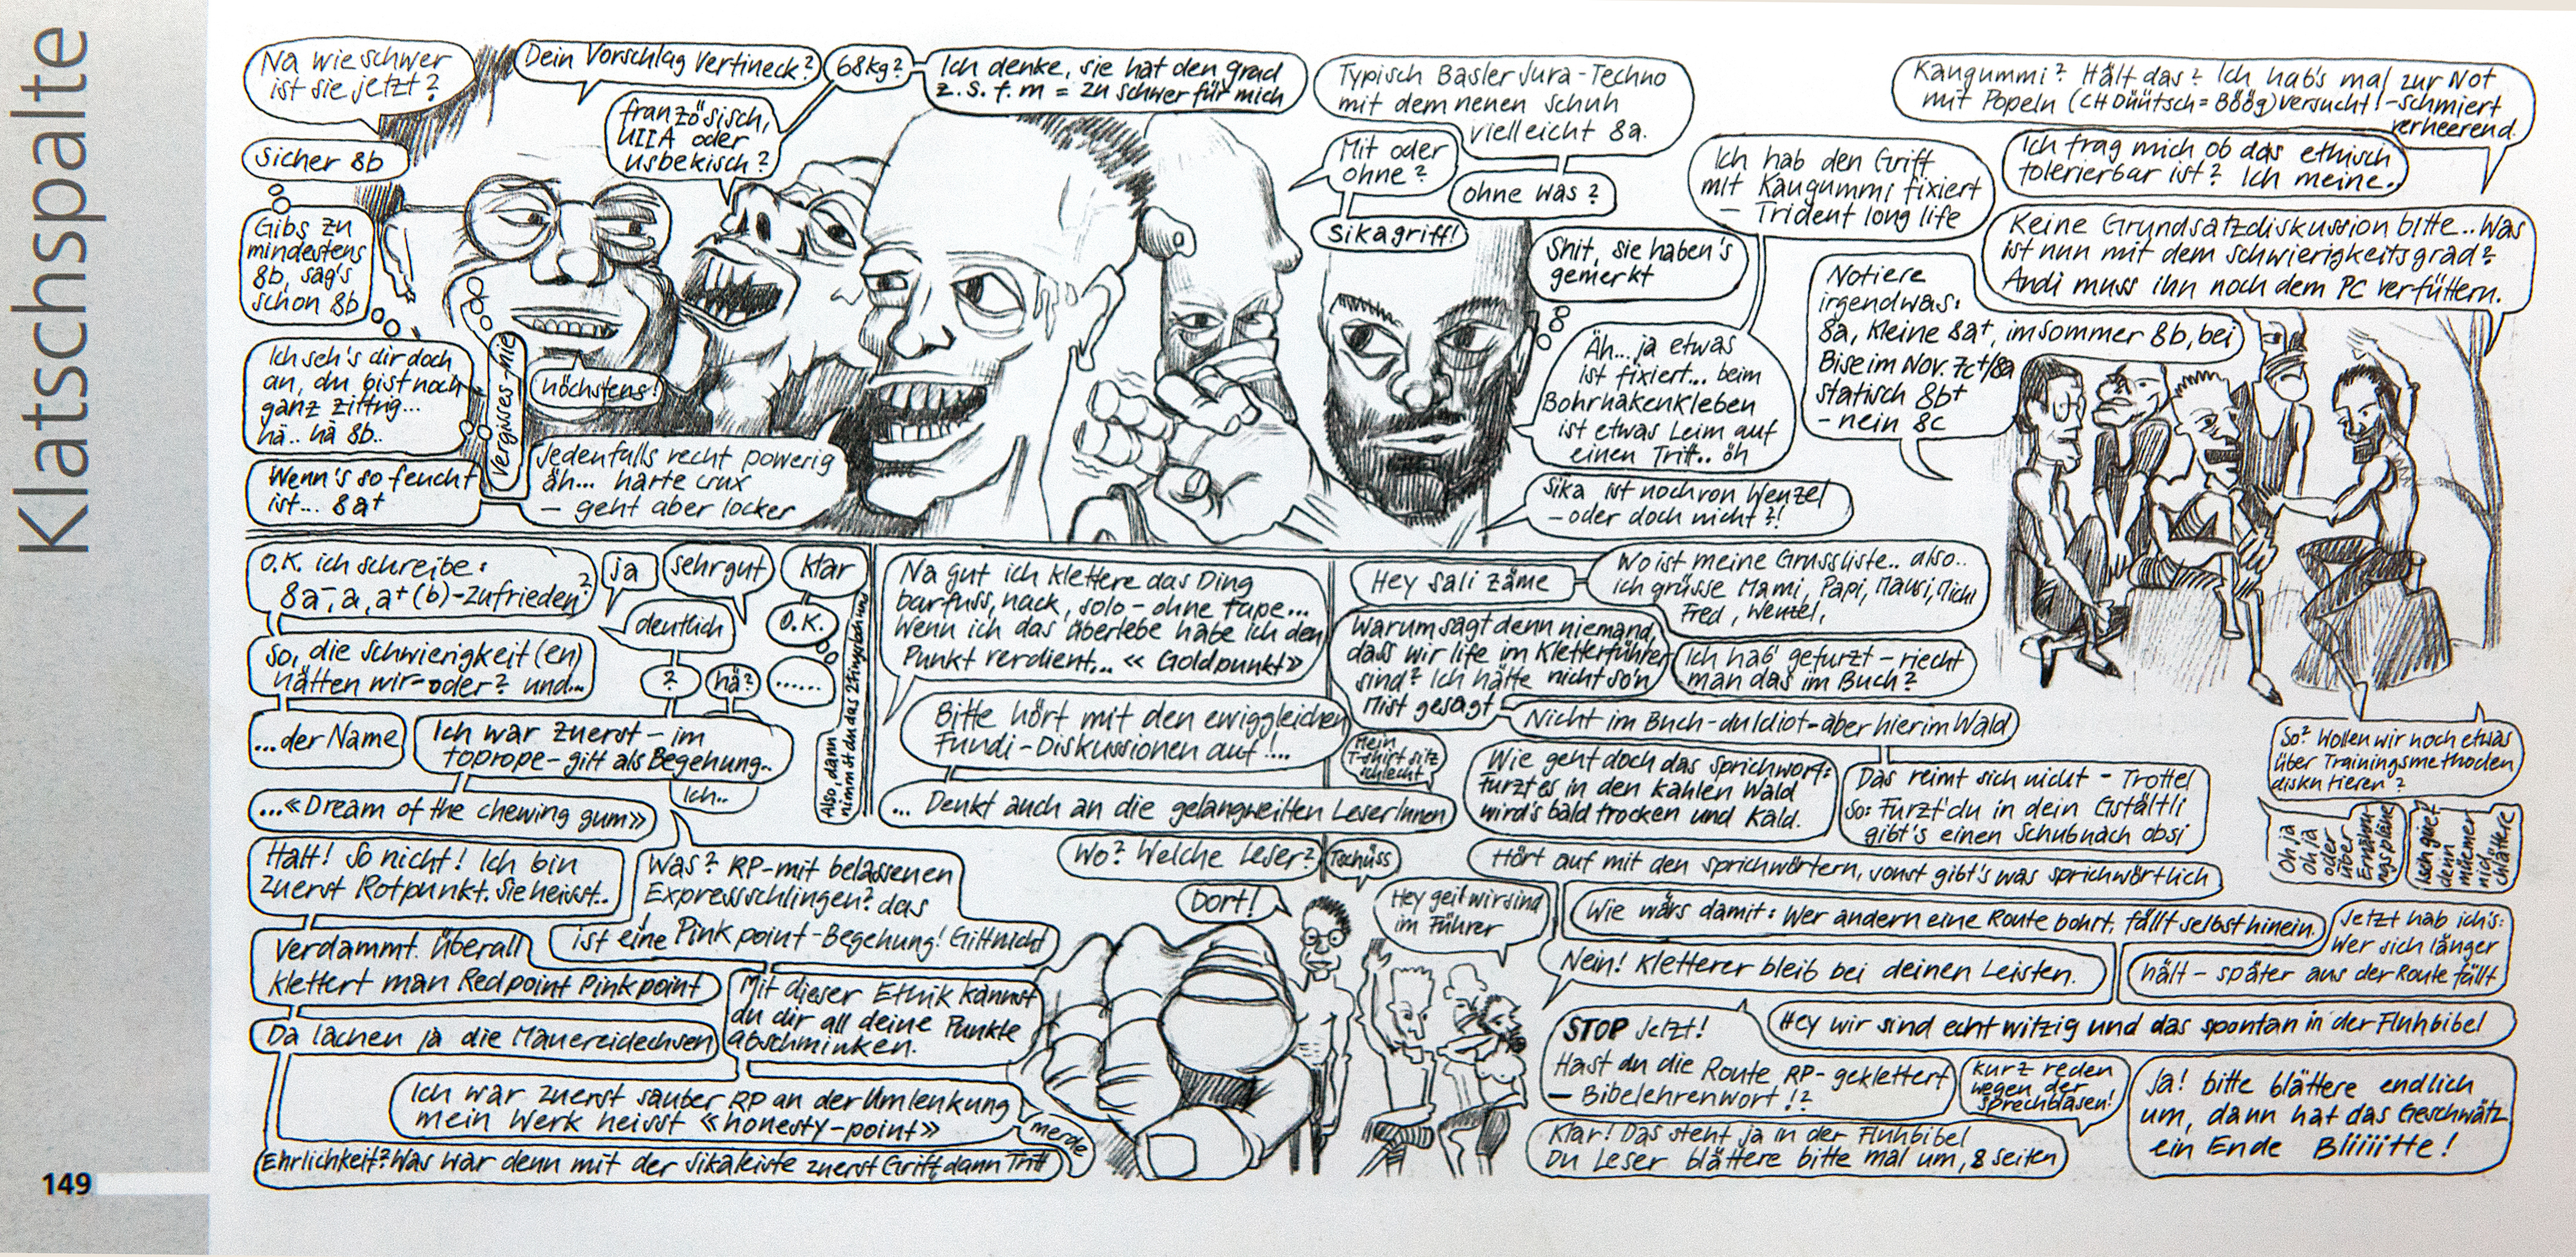 Klatschspalte
Na wie schwer
ist sie jetzt?
Sicher 8b
Gibs zu
mindestens
8b, sag's
schon 8b
Ich seh's dir doch
an, du bist noch
ganz zittrig...
hä.. hä 8b..
Wenn's so feucht
ist... 8a+
Vergisses - nie
höchstens!
Dein Vorschlag Vertineck?
französisch,
UIIA oder
usbekisch?
68kg?
Ich denke, sie hat den grad
z.s.f.m = zu schwer für mich
Jedenfalls recht powerig
äh... harte crux
- geht aber locker
Typisch Basler Jura-Techno
mit dem neuen schuh
vielleicht 8a.
Mit oder
ohne?
ohne was?
Sikagriff!
Shit, sie haben's
gemerkt
Ich hab den Griff
mit Kaugummi fixiert
- Trident long life
Äh... ja etwas
ist fixiert... beim
Bohrhakenkleben
ist etwas Leim auf
einen Tritt.. öh
Sika ist noch von Wenzel
- oder doch nicht?!
Kaugummi? Hält das? Ich hab's mal zur Not
mit Popeln (CH Düütsch = Böög) versucht! - schmiert
verheerend.
Ich frag mich ob das ethisch
tolerierbar ist? Ich meine..
Keine Grundsatzdiskussion bitte.. Was
ist nun mit dem schwierigkeitsgrad?
Andi muss ihn noch dem PC verfüttern.
Notiere
irgendwas:
8a, kleine 8a+, im sommer 8b, bei
Bise im Nov. 7c+/8a
statisch 8b+
- nein 8c
O.K. ich schreibe:
8a-, a, a+ (b) - zufrieden?
ja
sehr gut
klar
deutlich
O.K.
So, die schwierigkeit(en)
hätten wir - oder? und...
?
hä?
......
...der Name
Ich war zuerst - im
toprope - gilt als Begehung..
Ich..
Also, dann
nimmst du das 2 Fingerloch und
...«Dream of the chewing gum»
Halt! So nicht! Ich bin
zuerst Rotpunkt. Sie heisst..
Was? RP - mit belassenen
Expressschlingen? das
ist eine Pinkpoint-Begehung! Gilt nicht
Verdammt. überall
klettert man Redpoint Pinkpoint
Mit dieser Ethik kannst
du dir all deine Punkte
abschminken.
Da lachen ja die Mauereidechsen
Ich war zuerst sauber RP an der Umlenkung
mein Werk heisst «honesty-point»
merde
Ehrlichkeit? Was war denn mit der Sikaleiste zuerst Griff, dann Tritt
Na gut ich klettere das Ding
barfuss, nack, solo - ohne tape...
Wenn ich das überlebe habe ich den
Punkt verdient... «Goldpunkt»
Bitte hört mit den ewiggleichen
Fundi-Diskussionen auf!...
... Denkt auch an die gelangweilten LeserInnen
Wo? Welche Leser?
Tschüss
Dort!
Hey geil wir sind
im Führer
Hey sali zäme
Wo ist meine Grussliste.. also..
ich grüsse Mami, Papi, Mausi, Michi
Fred, Wenzel,
Warum sagt denn niemand,
dass wir life im Kletterführer
sind? Ich hätte nicht so'n
Mist gesagt
Ich hab' gefurzt - riecht
man das im Buch?
Nicht im Buch - du Idiot - aber hier im Wald
Mein
T-shirt sitz
schlecht
Wie geht doch das sprichwort:
furzt es in den kahlen Wald
wird's bald trocken und kald.
Das reimt sich nicht - Trottel
So: Furzt' du in dein Gstältli
gibt's einen Schub nach obsi
Hört auf mit den sprichwörtern, sonst gibt's was sprichwörtlich
Wie wärs damit: Wer andern eine Route bohrt, fällt selbst hinein.
Jetzt hab ich's:
Wer sich länger
hält - später aus der Route fällt
Nein! Kletterer bleib bei deinen Leisten.
Hey wir sind echt witzig und das spontan in der Fluhbibel
STOP jetzt!
Hast du die Route RP-geklettert
- Bibelehrenwort!?
kurz reden
wegen der
sprechblasen!
Klar! Das steht ja in der Fluhbibel
Du Leser blättere bitte mal um, 8 seiten
Ja! bitte blättere endlich
um, dann hat das Geschwätz
ein Ende Bliiiitte!
So? Wollen wir noch etwas
über Trainingsmethoden
diskutieren?
Oh ja
oh ja
oder
über
Ernähru-
ngspläne
Isch guet
denn
müemer
nid
chlättere
149